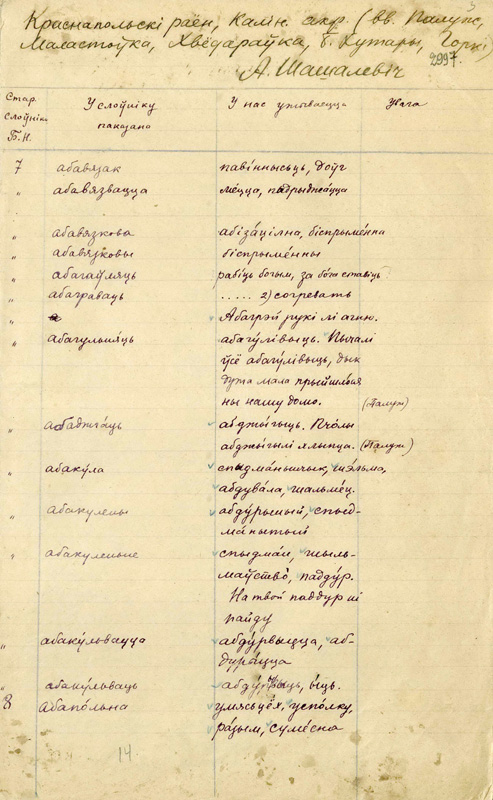 Краснапольскі раён, Калін. акр. (вв. Палуж,
Маластоўка, Хвёдараўка, б. Хутары, Горкі)
А. Шашалевіч 2997.
Стар. слоўніка Б.Н. У слоўніку паказано У нас ужываецца Увага
7 абавязак павіннысьць, доўг
„ абавязвацца
„ абавязкова абізацілна, біспрыме́нна
„ абавязковы біспрыме́нны
„ абагаўляць рабіць богым, за бож ставіць
„ абаграваць ..... 2) согревать
„ Абагрэй рукі лі агню.
„ абагульняць абагу́лівыць. Пычалі
ўсё абагу́лівыць, дык
дужа мала
ны нашу домо. (Палуж)
„ абаджга́ць абджыгыць. Пчолы
абджыгылі хлыпца. (Палуж)
„ абаку́ла спыдма́ньшчык, шэ́льма,
абдува́ла, шальме́ц.
„ абакулены абду́рыный, спыд-
ма́нытый
„ абакуленьне спыдма́н, шыль-
маўство́, падду́р.
На твой паддур ні
пайду
„ абаку́ловацца абду́рвыцца, аб-
дура́цца
„ абаку́ловаць абду́рвыць, ыць.
8 абапо́льна умясьцёх, успо́лку,
ра́зым, суме́сна
14.